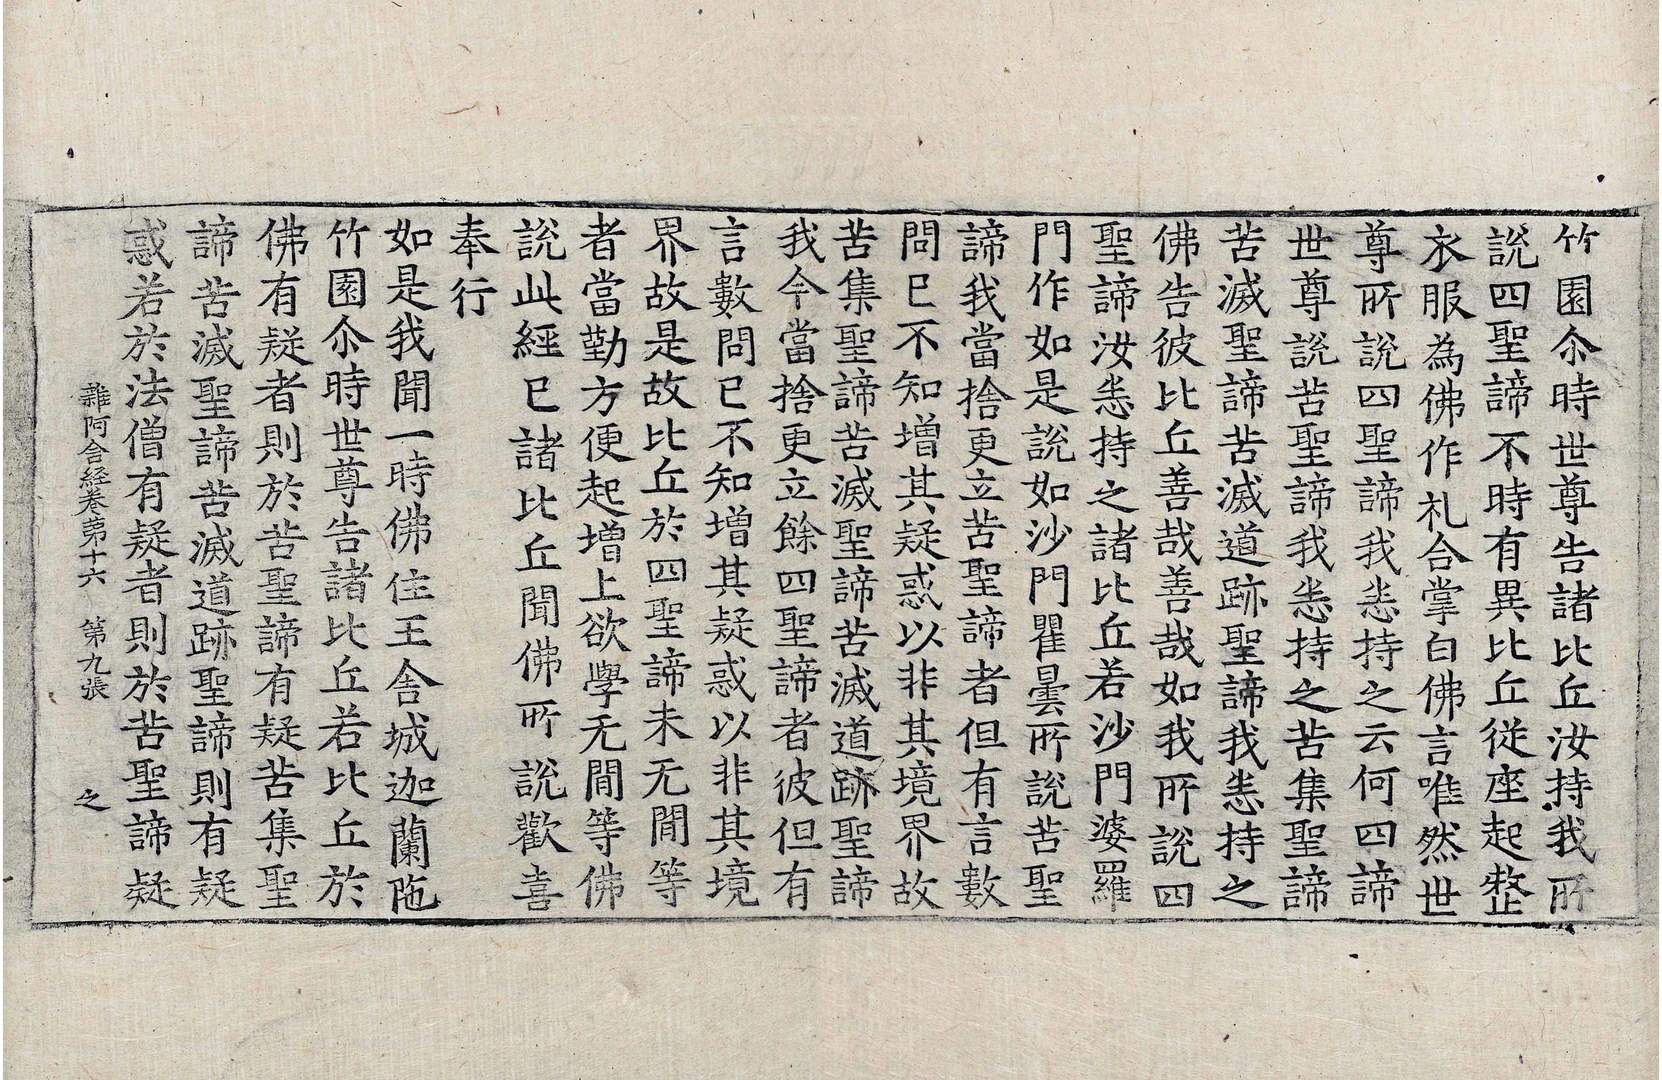 竹園尒時世尊告諸比丘汝持我所
說四聖諦不時有異比丘從座起整
衣服為佛作礼合掌白佛言唯然世
尊所說四聖諦我悉持之云何四諦
世尊說苦聖諦我悉持之苦集聖諦
苦滅聖諦苦滅道跡聖諦我悉持之
佛告彼比丘善哉善哉如我所說四
聖諦汝悉持之諸比丘若沙門婆羅
門作如是說如沙門瞿曇所說苦聖
諦我當捨更立苦聖諦者但有言數
問已不知增其疑惑以非其境界故
苦集聖諦苦滅聖諦苦滅道跡聖諦
我今當捨更立餘四聖諦者彼但有
言數問已不知增其疑惑以非其境
界故是故比丘於四聖諦未无間等
者當勤方便起增上欲學无間等佛
說此經已諸比丘聞佛所說歡喜
奉行
如是我聞一時佛住王舍城迦蘭陁
竹園尒時世尊告諸比丘若比丘於
佛有疑者則於苦聖諦有疑苦集聖
諦苦滅聖諦苦滅道跡聖諦則有疑
惑若於法僧有疑者則於苦聖諦疑
雜阿含経卷苐十六 第九張 之